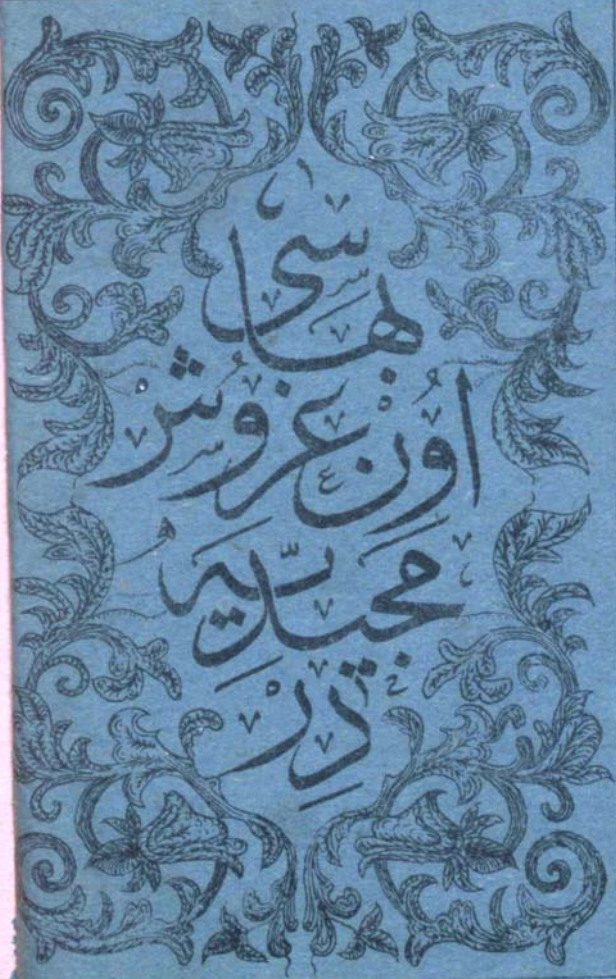 بهاسی
اون غروش
مجیدیه
در